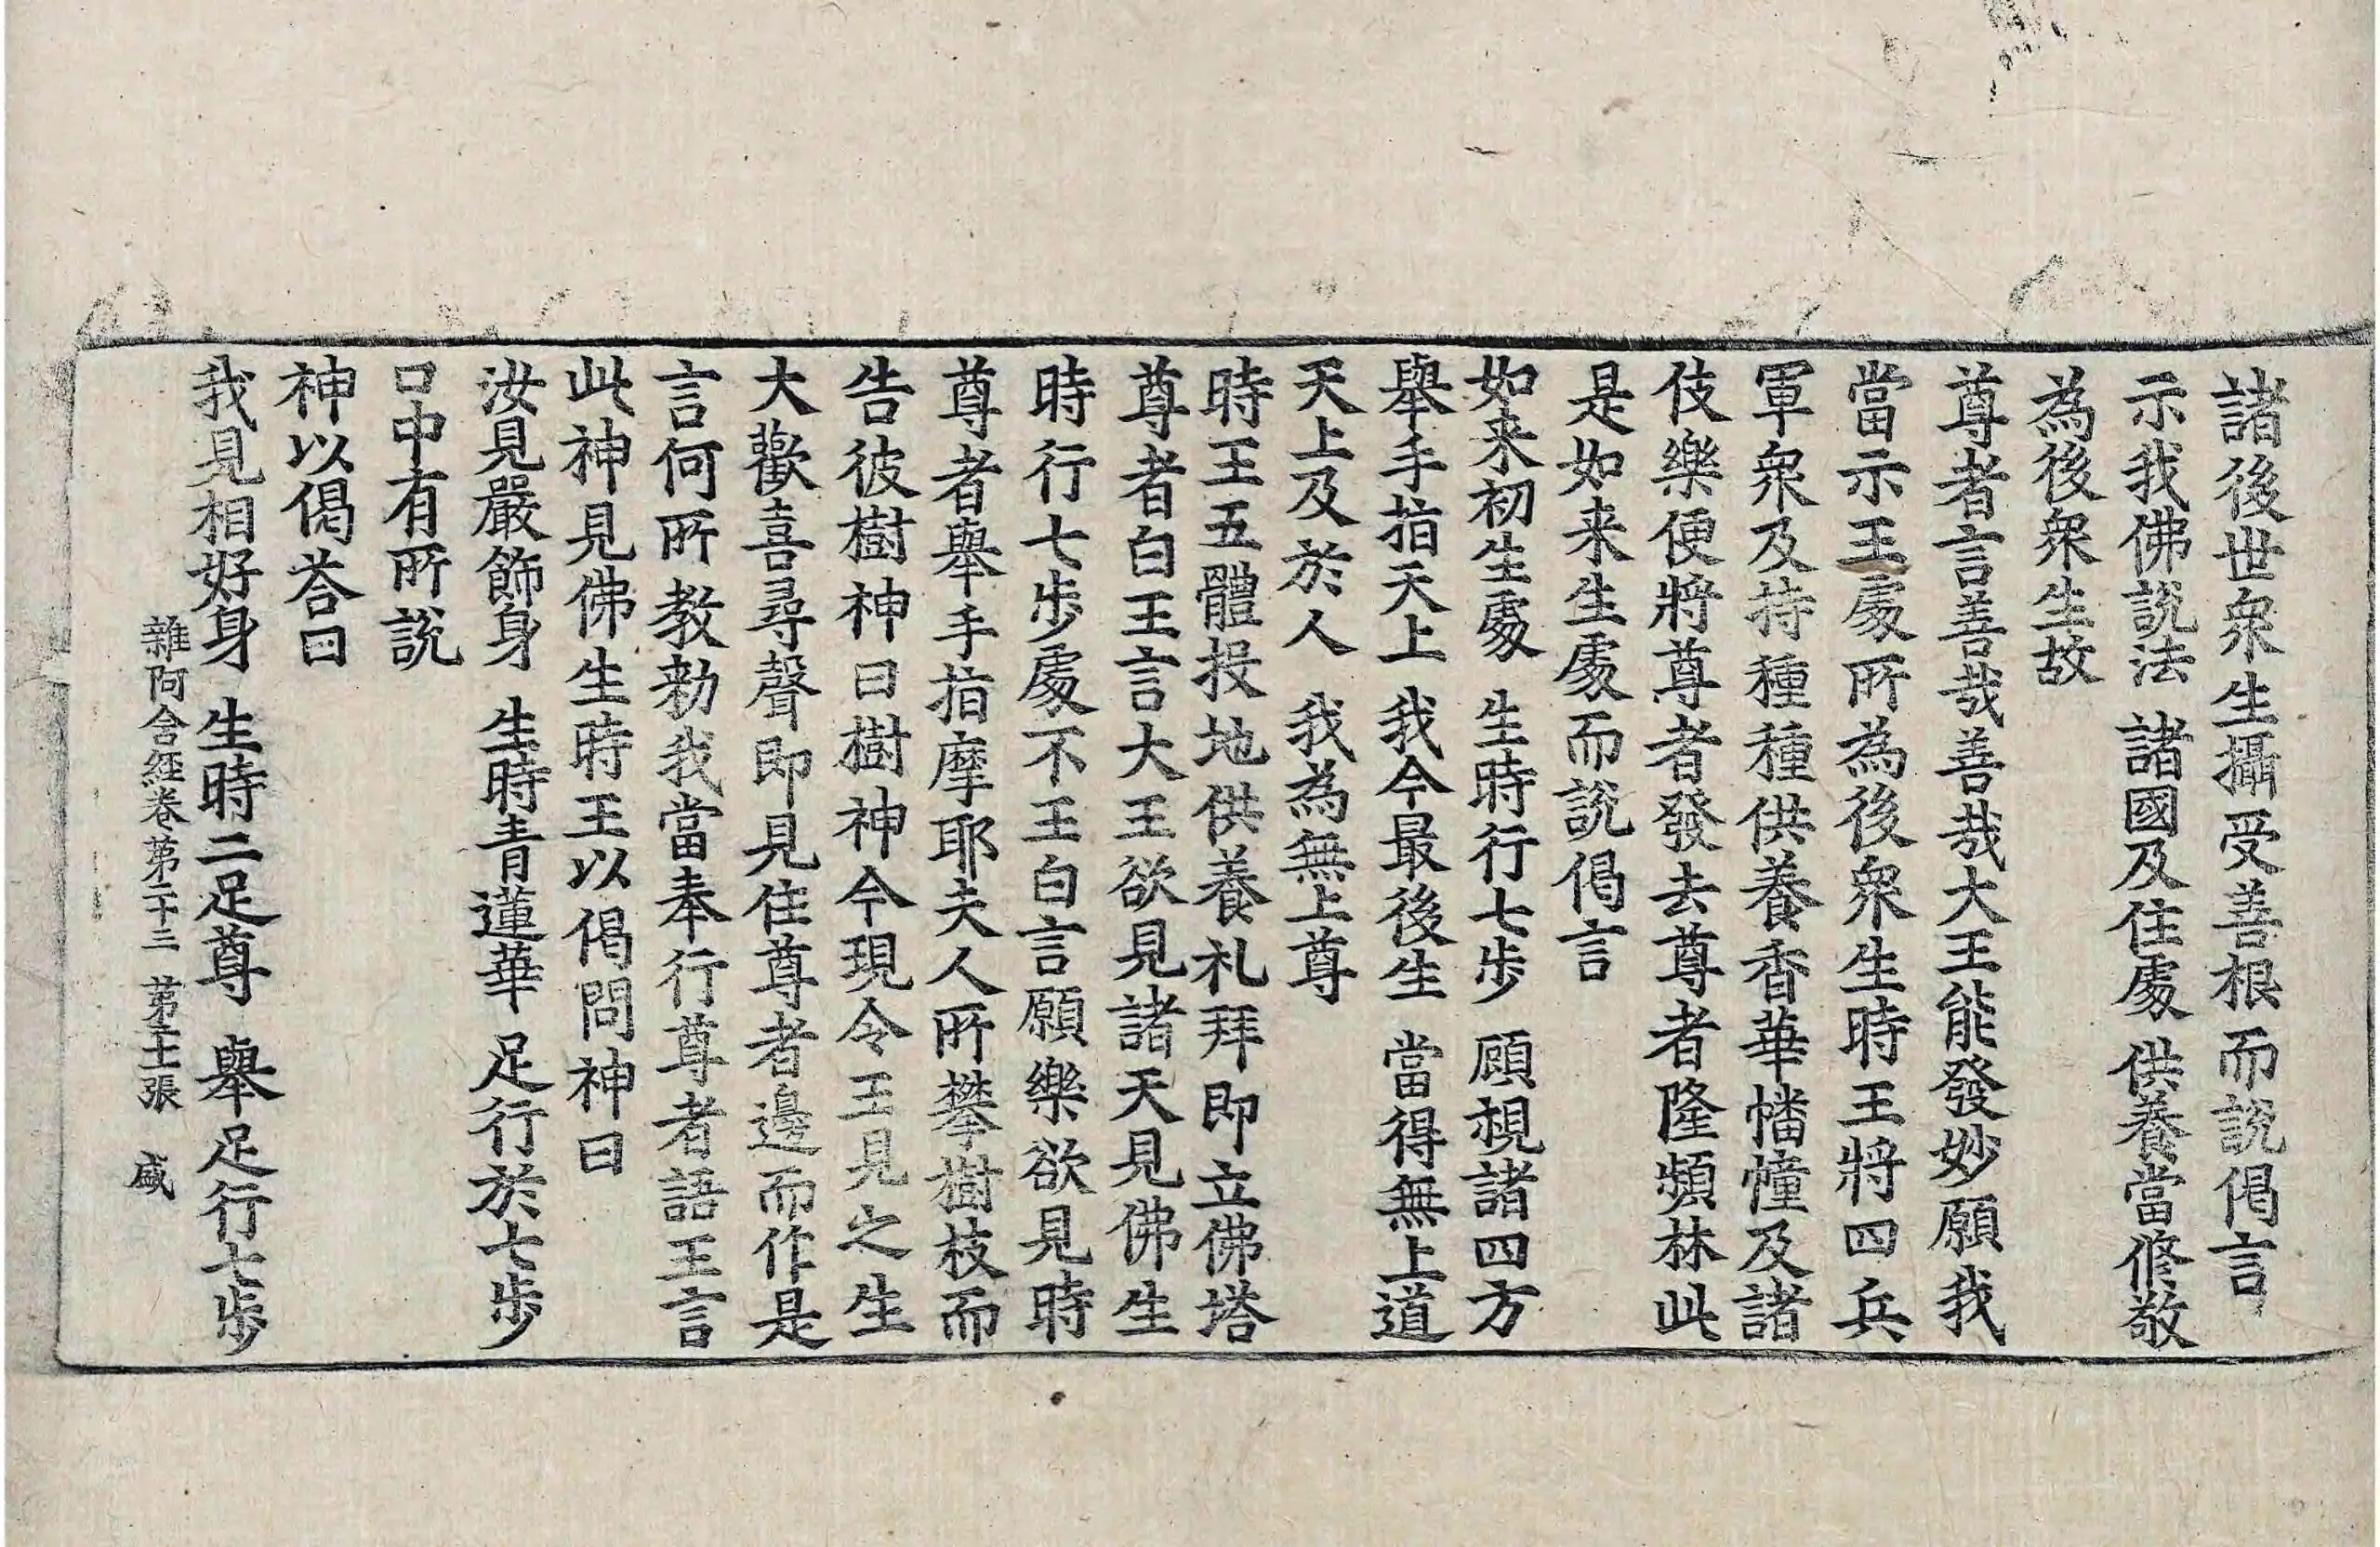 諸後世衆生攝受善根而說偈言
示我佛說法　諸國及住處　供養當修敬
為後衆生故
尊者言善哉善哉大王能發妙願我
當示王處所為後衆生時王將四兵
軍衆及持種種供養香華幡幢及諸
伎樂便將尊者發去尊者隆頻林此
是如来生處而說偈言
如来初生處　生時行七步　顧視諸四方
舉手指天上　我今最後生　當得無上道
天上及於人　我為無上尊
時王五體投地供養礼拜即立佛塔
尊者白王言大王欲見諸天見佛生
時行七步處不王白言願樂欲見時
尊者舉手指摩耶夫人所攀樹枝而
告彼樹神曰樹神今現令王見之生
大歡喜尋聲即見住尊者邊而作是
言何所教勑我當奉行尊者語王言
此神見佛生時王以偈問神曰
汝見嚴飾身　生時青蓮華　足行於七步
口中有所說
神以偈荅曰
我見相好身　生時二足尊　舉足行七步
雜阿含經卷第二十三　第十二張　盛